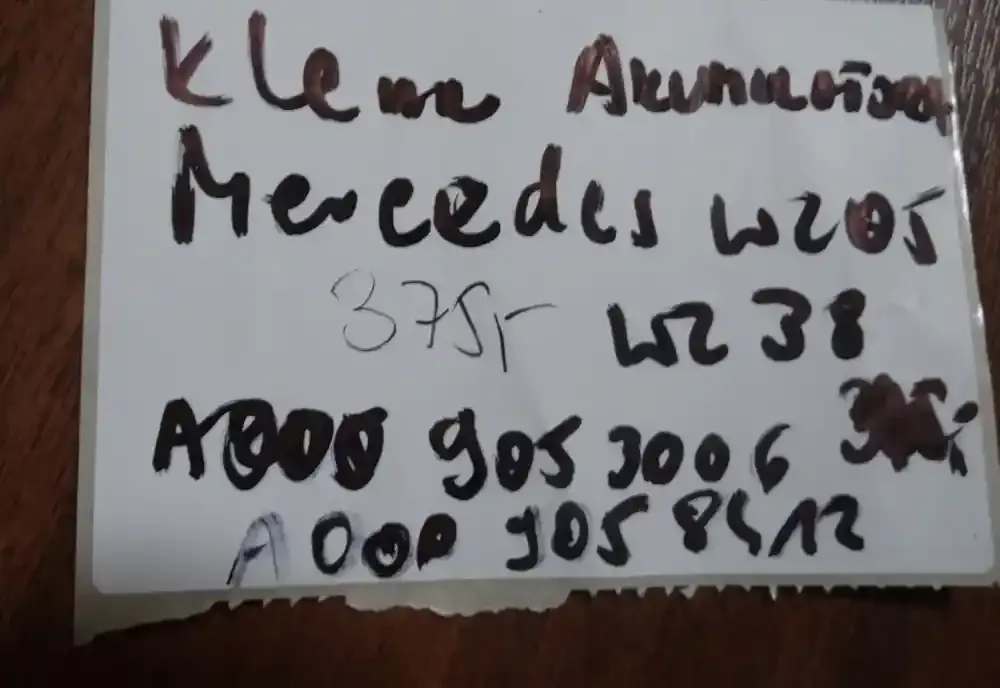 Klema Akumulator
Mercedes W205
375,- W238
A000 905 3006
A 000 905 8412